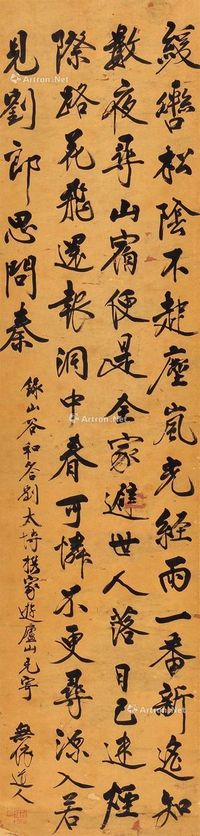 緩轡松陰不起塵嵐光經雨一番新遙知
數夜尋山宿便是全家避世人落日已迷煙
際路花飛還報洞中春可憐不更尋源入若
見劉郎思問秦
錄山谷和答別太博携家遊廬山見寄
無倪道人